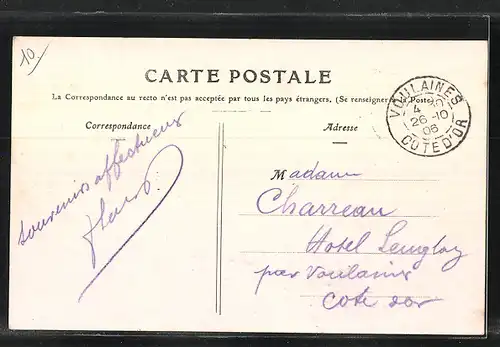 10.
CARTE POSTALE
La Correspondance au recto n'est pas acceptée par tous les pays étrangers. (Se renseigner à la Poste)
Correspondance
Adresse
VOULAINES
26 -10
06
COTE D'OR
souvenirs affectueux
Madame
Charreau
Hotel
par Voulaines
Cote dor